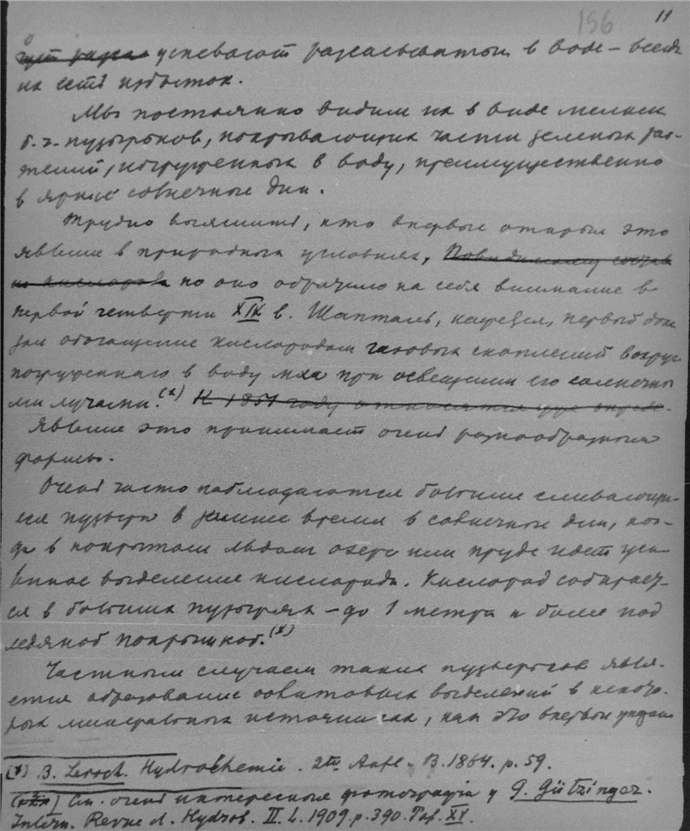 196 11
успевают рассасываться в воде – всегда
их есть избыток.
Мы постоянно видим их в виде мелких
б. г. пузырьков, покрывающих части зеленых рас-
тений, погруженных в воду, преимущественно
в яркие солнечные дни.
Трудно выяснить, кто впервые открыл это
явление в природных условиях, По-видимому
но оно обратило на себя внимание в
первой четверти XIX в. Шапталь, первый
обогащение кислородом газовых скоплений вокруг
погруженного в воду мха при освещении его солнечны-
ми лучами.(x) К 1851 году относятся
Явление это принимает очень разнообразные
формы.
Очень часто наблюдаются большие сливающие-
ся пузыри в зимнее время в солнечные дни, ког-
да в покрытом льдом озере или пруде идет уси-
ленное выделение кислорода. Кислород собирает-
ся в больших пузырях – до 1 метра и более под
ледяной покрышкой.(x)
Частным случаем таких пузырьков явля-
ется образование оолитовых выделений в некото-
рых минеральных источниках, как это впервые указал
(x) B. Lersch. Hydrochemie. 2te Aufl. B. 1864. p. 59.
См. очень интересные фотографии у G. Götzinger.
Intern. Revue d. Hydrob. II. L. 1909. p. 390. Taf. XV.